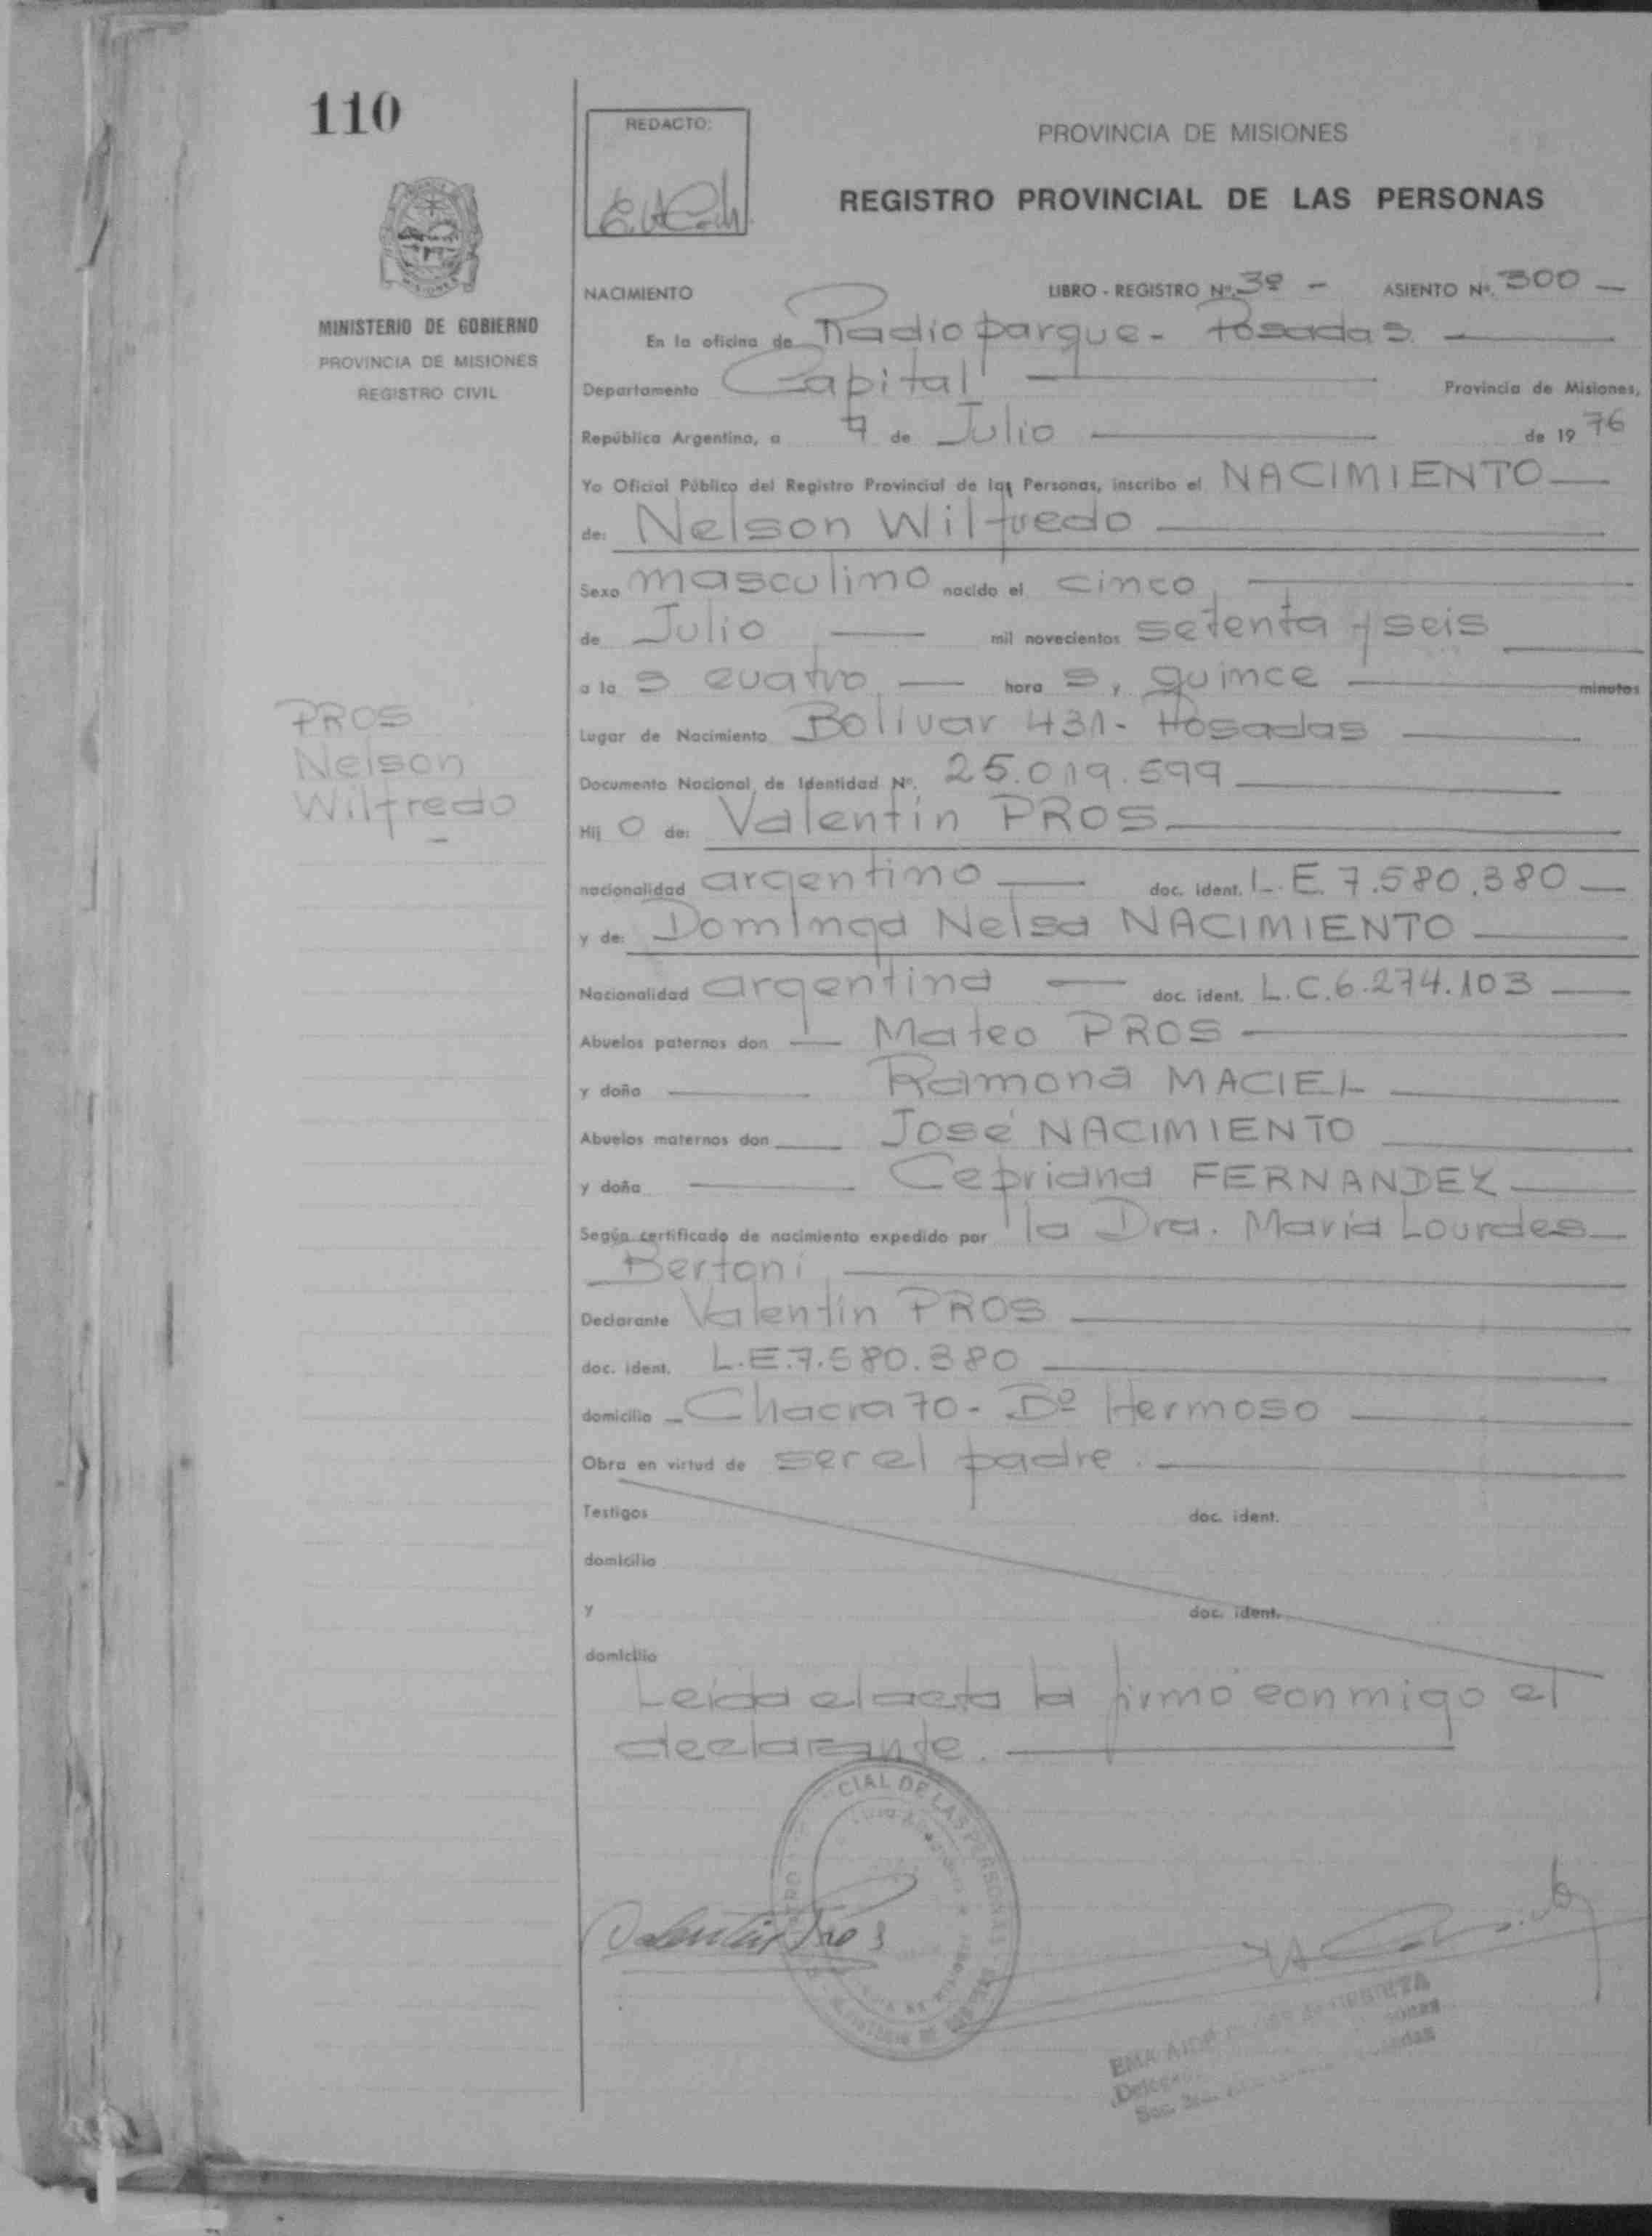 110
REDACTO:
PROVINCIA DE MISIONES
REGISTRO PROVINCIAL DE LAS PERSONAS
MINISTERIO DE GOBIERNO
PROVINCIA DE MISIONES
REGISTRO CIVIL
NACIMIENTO LIBRO - REGISTRO Nº. 3º - ASIENTO Nº. 300 —
En la oficina de Radio parque - Posadas
Departamento Capital Provincia de Misiones,
República Argentina, a 7 de Julio de 1976
Yo Oficial Público del Registro Provincial de las Personas, inscribo el NACIMIENTO
de: Nelson Wilfredo
Sexo masculino nacido el cinco
de Julio mil novecientos setenta y seis
a las cuatro horas, quince minutos
PROS
Nelson
Wilfredo
Lugar de Nacimiento Bolívar 431 - Posadas
Documento Nacional de Identidad Nº. 25.019.599
Hijo de: Valentín PROS
nacionalidad argentino doc. ident. L.E. 7.580.380
y de: Dominga Nelsa NACIMIENTO
Nacionalidad argentina doc. ident. L.C. 6.274.103
Abuelos paternos don Mateo PROS
y doña Ramona MACIEL
Abuelos maternos don José NACIMIENTO
y doña Cepriana FERNANDEZ
Según certificado de nacimiento expedido por la Dra. María Lourdes
Bertoni
Declarante Valentín PROS
doc. ident. L.E. 7.580.380
domicilio Chacra 70 - Bº Hermoso
Obra en virtud de ser el padre.
Testigos doc. ident.
domicilio
y doc. ident.
domicilio
Leída el acta la firmó conmigo el
declarante.
CIAL DE LAS PERSONAS
Valentin Pros
EMA